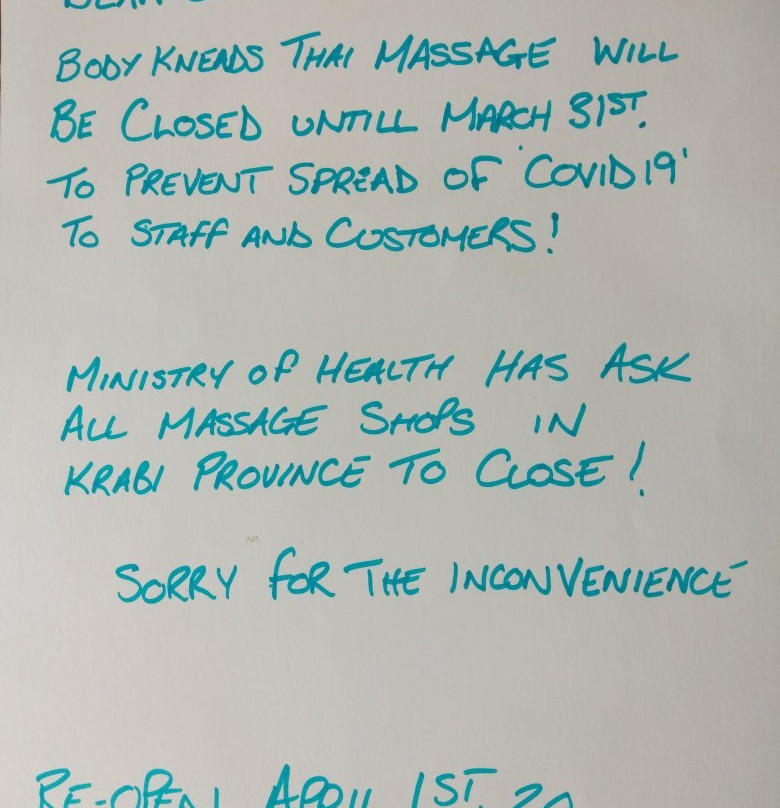 BODY KNEADS THAI MASSAGE WILL
BE CLOSED UNTILL MARCH 31ST.
TO PREVENT SPREAD OF 'COVID19'
TO STAFF AND CUSTOMERS!
MINISTRY OF HEALTH HAS ASK
ALL MASSAGE SHOPS IN
KRABI PROVINCE TO CLOSE!
SORRY FOR THE INCONVENIENCE
RE-OPEN APRIL 1ST.